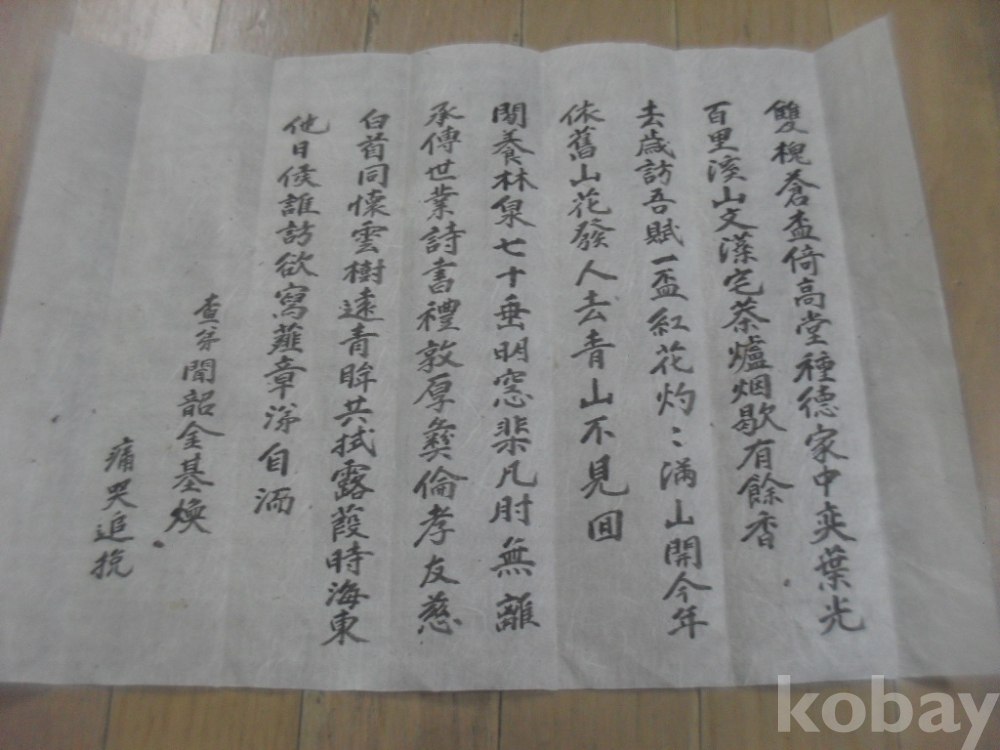 雙槐蒼盍倚高堂種德家中奕葉光
百里溪山文藻宅茶爐烟歇有餘香
去歲訪吾賦一盃紅花灼〻滿山開今年
依舊山花發人去青山不見回
閒養林泉七十垂明窓棐几肘無離
承傳世業詩書禮敦厚彛倫孝友慈
白首同懷雲樹遠青眸共拭露葭時海東
他日候誰訪欲寫薤章涕自洏
查弟聞韶金基煥
痛哭追挽
kobay